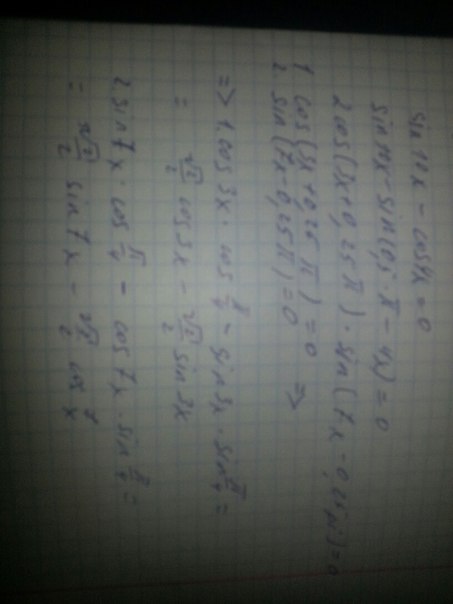 sin 10x - cos 4x = 0
sin 10x - sin (0,5 π - 4x) = 0
2 cos (3x + 0,25 π) · sin (7x - 0,25 π) = 0
1 cos (3x + 0,25 π) = 0 =>
2 sin (7x - 0,25 π) = 0
=> 1. cos 3x · cos π/4 - sin 3x · sin π/4 =
= √2/2 cos 3x - √2/2 sin 3x
2. sin 7x · cos π/4 - cos 7x · sin π/4 =
= √2/2 sin 7x - √2/2 cos 7x